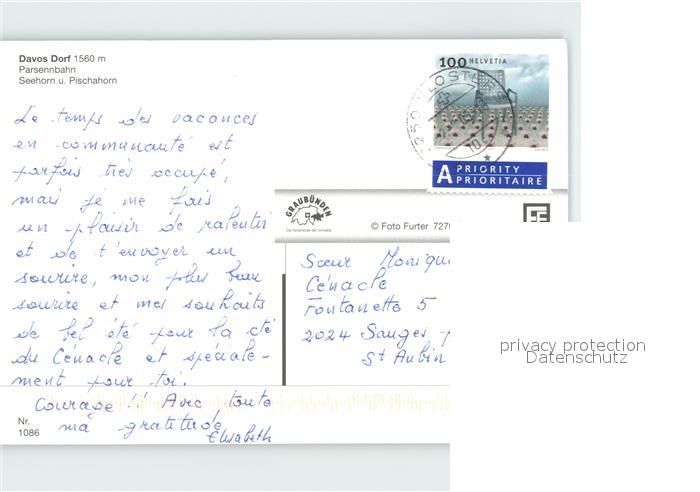 Davos Dorf 1560 m
Parsennbahn
Seehorn u. Pischahorn
Le temps des vacances
en communauté est
parfois très occupé,
mais je me fais
un plaisir de ralentir
et de t'envoyer un
sourire, mon plus beau
sourire et mes souhaits
de bel été pour la cté
du Cénacle et spéciale-
ment pour toi.
Courage !! Avec toute
ma gratitude
Elisabeth
Nr.
1086
100 HELVETIA
A PRIORITY
PRIORITAIRE
GRAUBÜNDEN
Die Ferienecke der Schweiz
© Foto Furter 7270
Sœur Monique
Cénacle
Fontanette 5
2024 Sauges
St Aubin
privacy protection
Datenschutz